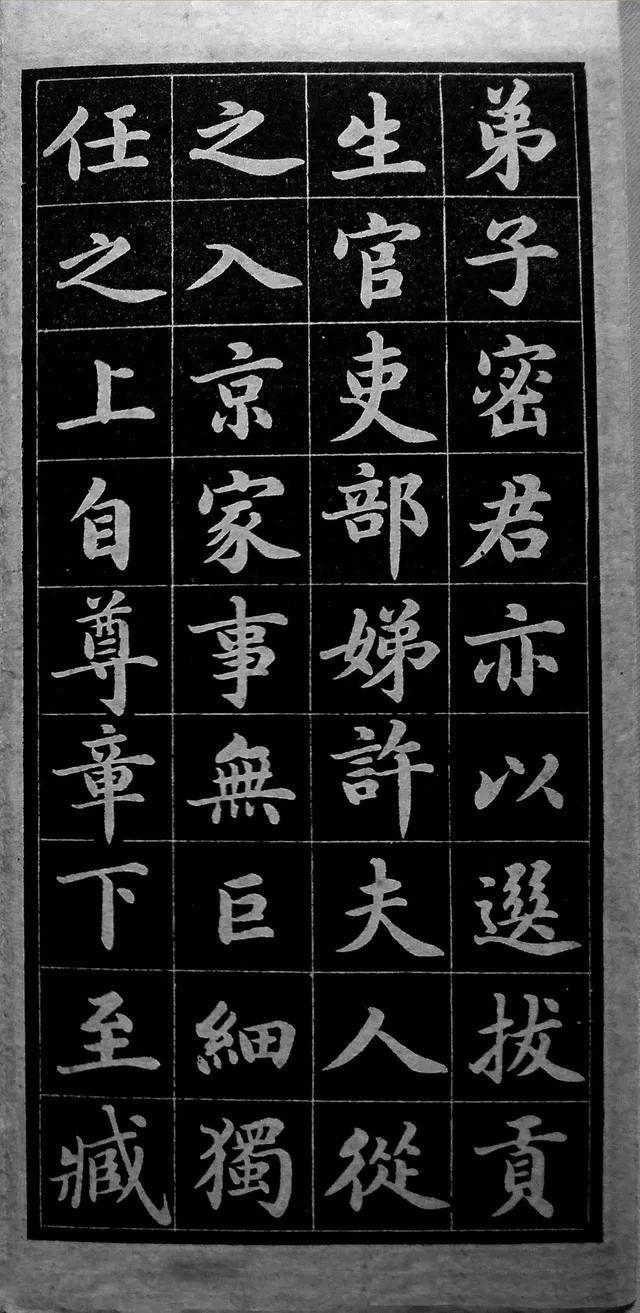 弟子密君亦以選拔貢
生官吏部娣許夫人從
之入京家事無巨細獨
任之上自尊章下至臧